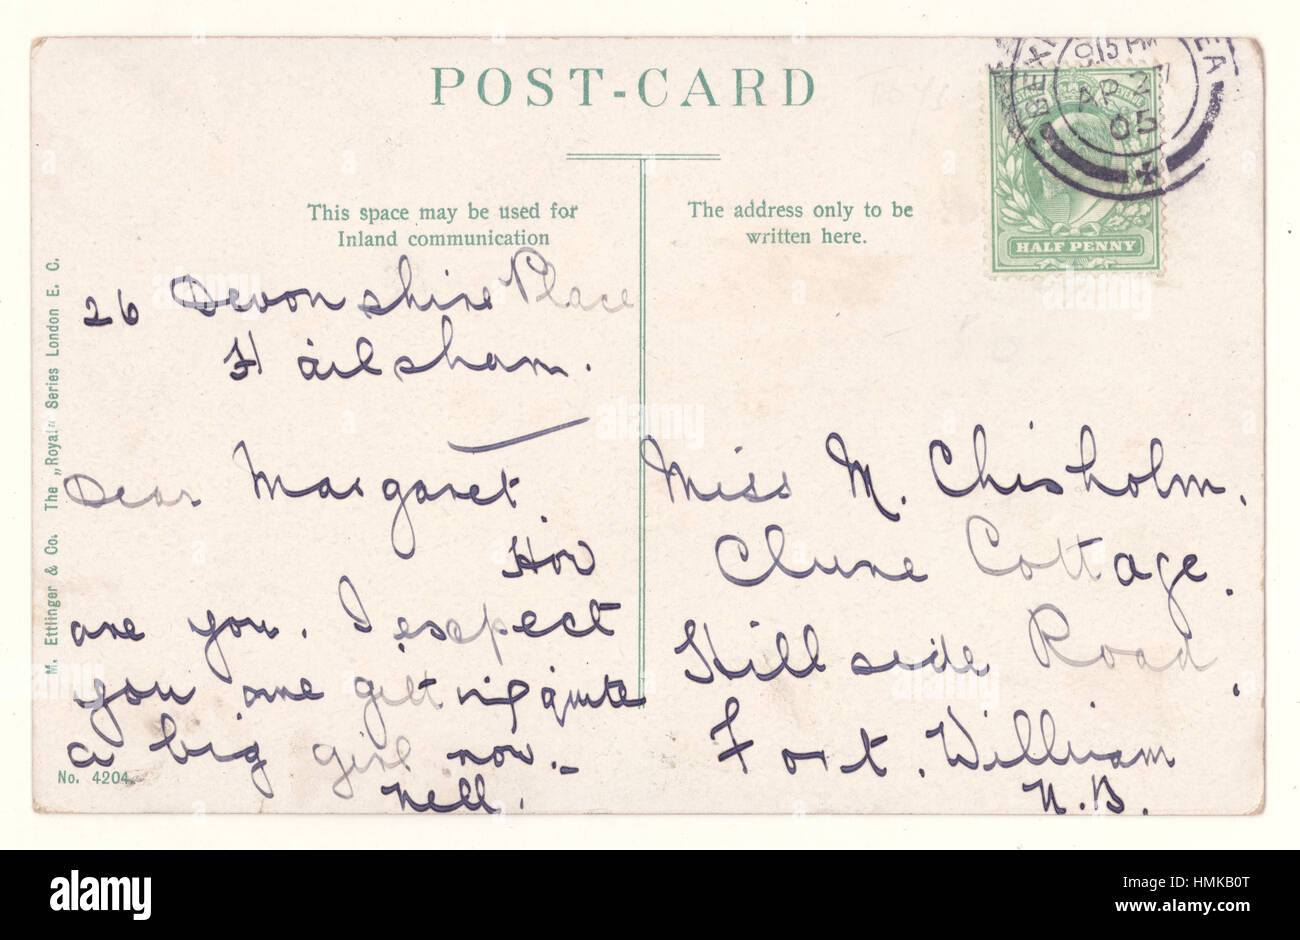 POST-CARD
This space may be used for
Inland communication
The address only to be
written here.
HALF PENNY
BEX
9.15 PM
AP 27
05
EA
26 Devonshire Place
Hailsham.
Dear Margaret
How
are you. I expect
you are quite
a big girl now.
Nell.
Miss M. Chisholm.
Clune Cottage.
Hillside Road,
Fort. William
N.B.
M. Ettlinger & Co. The „Royal" Series London E. C.
No. 4204.
alamy
Image ID: HMKB0T
www.alamy.com